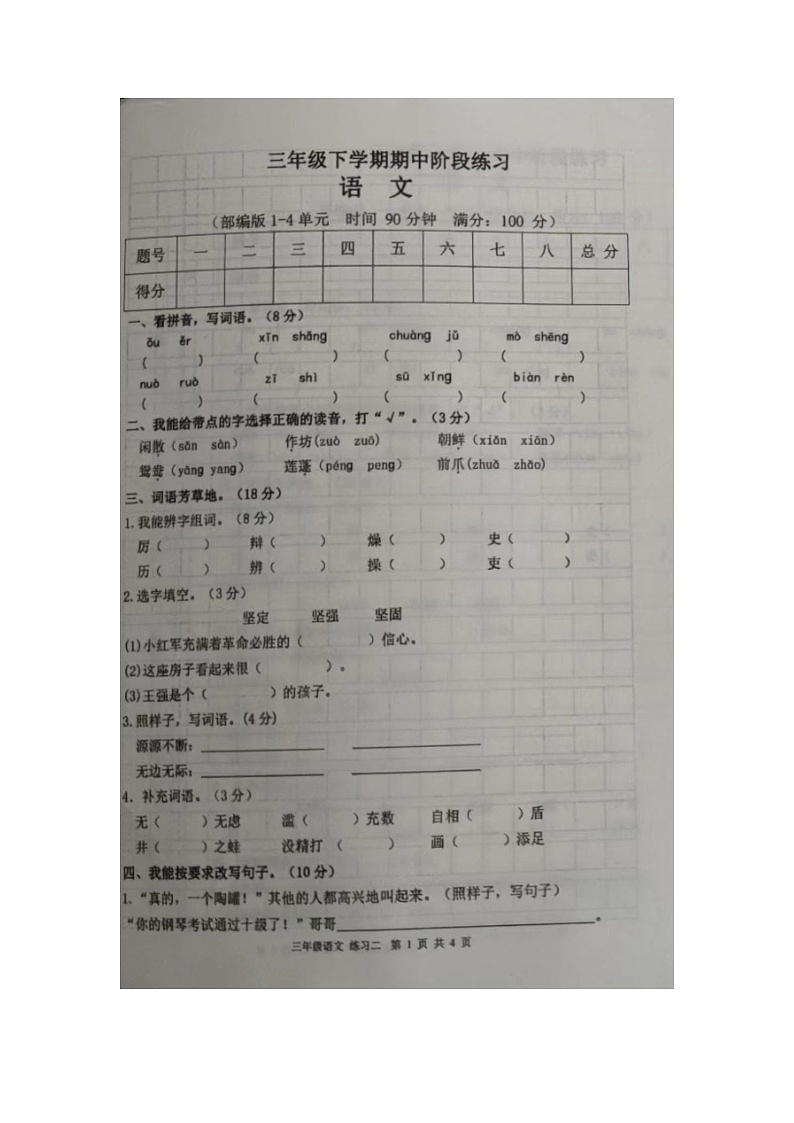 三年级下学期期中阶段练习
语 文
（部编版 1-4 单元 时间 90 分钟 满分：100 分）
题号 一 二 三 四 五 六 七 八 总 分
得分
一、看拼音，写词语。（8 分）
ǒu ěr xīn shǎng chuàng jǔ mò shēng
（ ） （ ） （ ） （ ）
nuò ruò zī shì sū xǐng biàn rèn
（ ） （ ） （ ） （ ）
二、我能给带点的字选择正确的读音，打“√”。（3 分）
闲散（sǎn sàn） 作坊(zuò zuō) 朝鲜（xiǎn xiān）
鸳鸯（yāng yang） 莲蓬（péng peng） 前爪(zhuǎ zhǎo)
三、词语芳草地。（18 分）
1.我能辨字组词。（8 分）
厉（ ） 辩（ ） 燥（ ） 史（ ）
历（ ） 辨（ ） 操（ ） 吏（ ）
2.选字填空。（3 分）
坚定 坚强 坚固
(1)小红军充满着革命必胜的（ ）信心。
(2)这座房子看起来很（ ）。
(3)王强是个（ ）的孩子。
3.照样子，写词语。(4 分)
源源不断：
无边无际：
4．补充词语。（3 分）
无（ ）无虑 滥（ ）充数 自相（ ）盾
井（ ）之蛙 没精打（ ） 画（ ）添足
四、我能按要求改写句子。（10 分）
1.“真的，一个陶罐！”其他的人都高兴地叫起来。（照样子，写句子）
“你的钢琴考试通过十级了！”哥哥 。
三年级语文 练习二 第 1 页 共 4 页